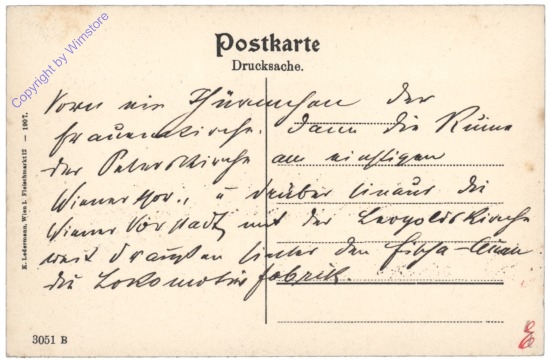 Copyright by Wimstore
Postkarte
Drucksache.
Vorn ein Thürmchen der
Frauenkirche. Dann die Ruine
der Peterskirche am einstigen
Wienerthor., u drüber hinaus die
Wiener Vorstadt mit der Leopoldskirche
weit draußen hinter den
die Lokomotivfabrik.
K. Ledermann, Wien I. Fleischmarkt 12 — 1907.
3051 B